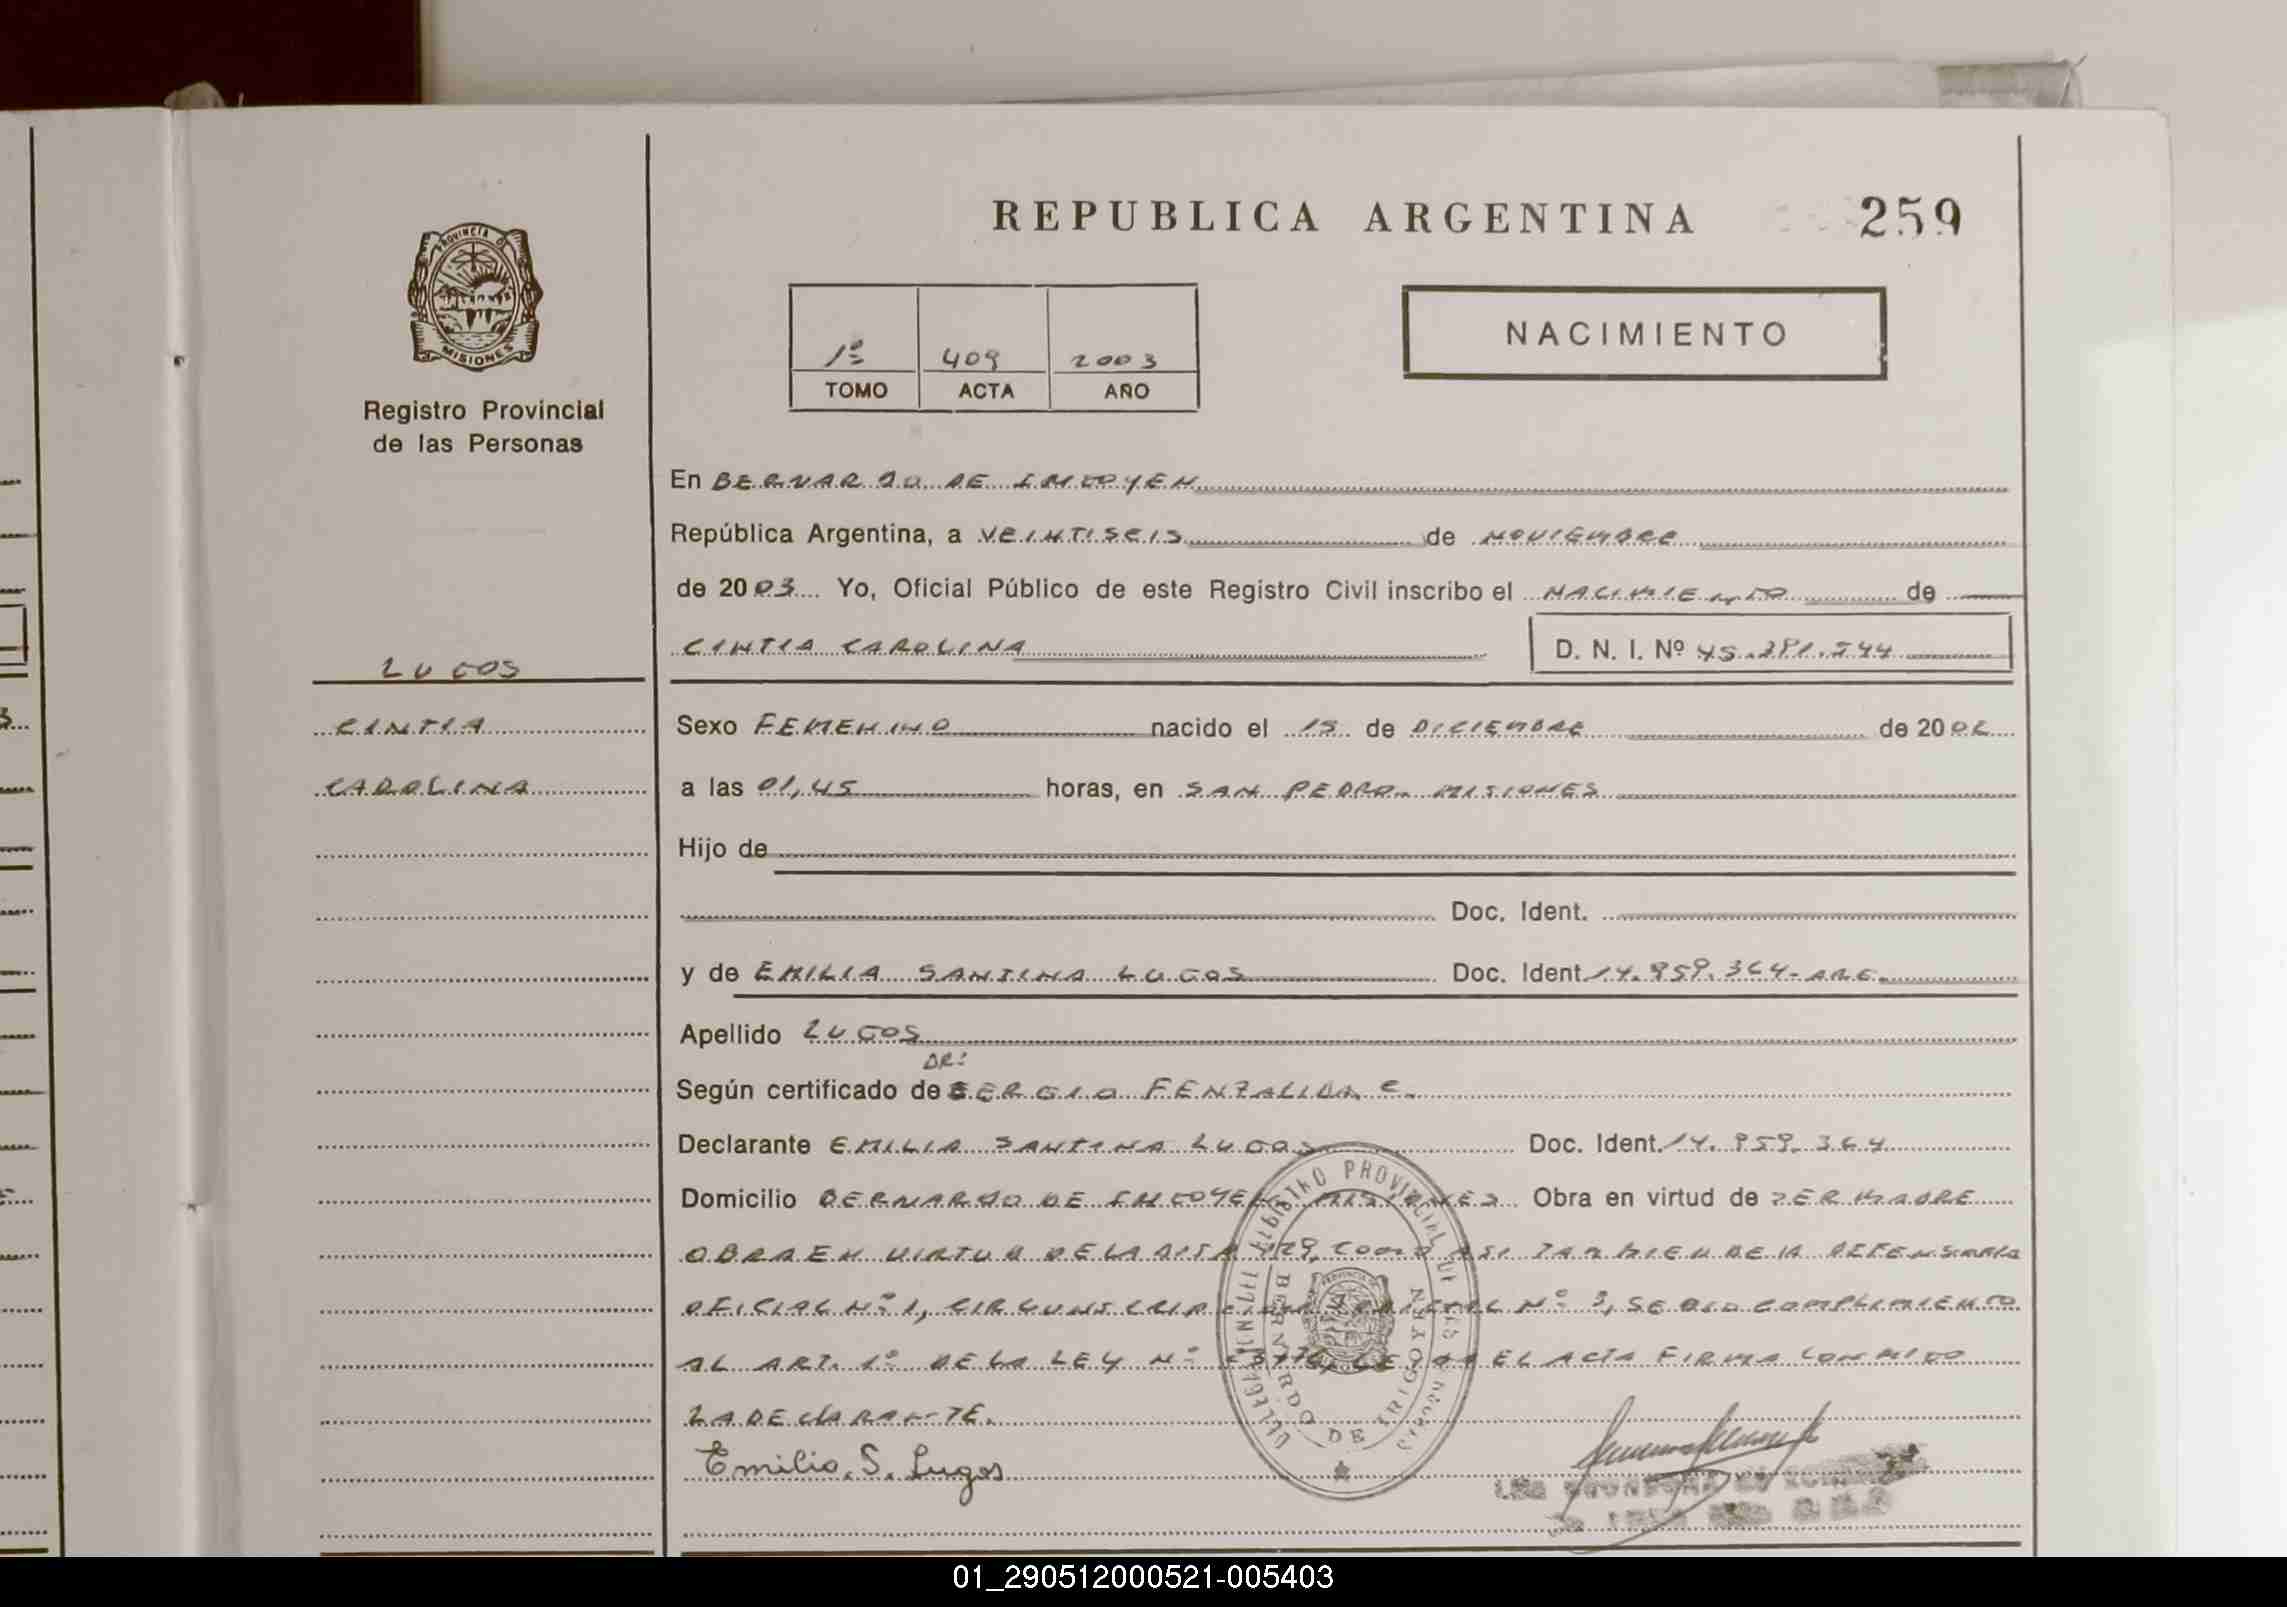 REPUBLICA ARGENTINA
259
PROVINCIA D
MISIONES
Registro Provincial
de las Personas
1º 409 2003
TOMO ACTA AÑO
NACIMIENTO
En BERNARDO DE IRIGOYEN
República Argentina, a VEINTISEIS de NOVIEMBRE
de 2003 Yo, Oficial Público de este Registro Civil inscribo el NACIMIENTO de
CINTIA CAROLINA D. N. I. Nº 45.281.544
LUGOS
CINTIA
CAROLINA
Sexo FEMENINO nacido el 15 de DICIEMBRE de 2002
a las 01,45 horas, en SAN PEDRO - MISIONES
Hijo de
Doc. Ident.
y de EMILIA SANTINA LUGOS Doc. Ident. 14.959.364- ARG.
Apellido LUGOS
DR:
Según certificado de SERGIO FENZALIDA C.
Declarante EMILIA SANTINA LUGOS Doc. Ident. 14.959.364
Domicilio BERNARDO DE IRIGOYEN MISIONES Obra en virtud de SER MADRE
OBRA EN VIRTUD DE LA DISP 129, COMO ASI TAMBIEN DE LA DEFENSORIA
OFICIAL Nº 1, CIRCUNSCRIPCION JUDICIAL Nº 3, SE DIO COMPLIMIENTO
AL ART. 1º DE LA LEY Nº LEIDA EL ACTA FIRMA CONMIGO
LA DECLARANTE.
Emilia. S. Lugos
REGISTRO PROVINCIAL DE LAS PERSONAS
BERNARDO DE IRIGOYEN
01_290512000521-005403